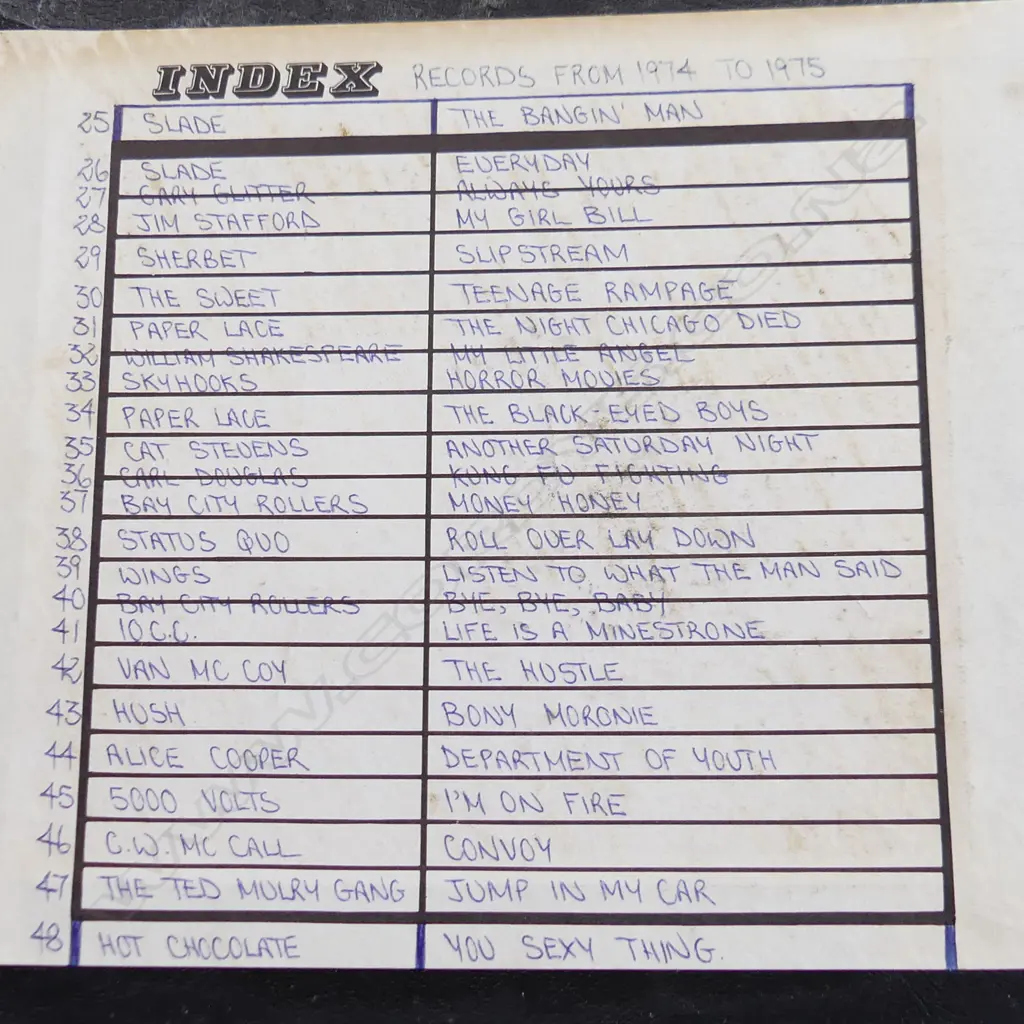 INDEX RECORDS FROM 1974 TO 1975
25 SLADE THE BANGIN' MAN
26 SLADE EVERYDAY
27 GARY GLITTER ALWAYS YOURS
28 JIM STAFFORD MY GIRL BILL
29 SHERBET SLIPSTREAM
30 THE SWEET TEENAGE RAMPAGE
31 PAPER LACE THE NIGHT CHICAGO DIED
32 WILLIAM SHAKESPEARE MY LITTLE ANGEL
33 SKYHOOKS HORROR MOVIES
34 PAPER LACE THE BLACK-EYED BOYS
35 CAT STEVENS ANOTHER SATURDAY NIGHT
36 CARL DOUGLAS KUNG FU FIGHTING
37 BAY CITY ROLLERS MONEY HONEY
38 STATUS QUO ROLL OVER LAY DOWN
39 WINGS LISTEN TO WHAT THE MAN SAID
40 BAY CITY ROLLERS BYE, BYE, BABY
41 10.C.C. LIFE IS A MINESTRONE
42 VAN MC COY THE HUSTLE
43 HUSH BONY MORONIE
44 ALICE COOPER DEPARTMENT OF YOUTH
45 5000 VOLTS I'M ON FIRE
46 C.W. MC CALL CONVOY
47 THE TED MULRY GANG JUMP IN MY CAR
48 HOT CHOCOLATE YOU SEXY THING.